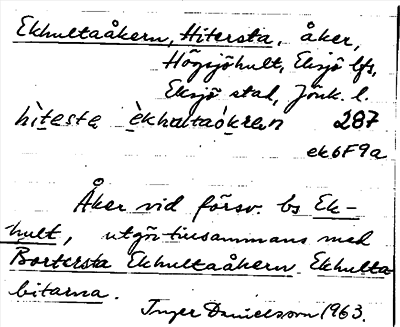 Ekhultaåkern, Hitersta, åker,
Högsjöhult, Eksjö lfs,
Eksjö stad, Jönk. l.
hìtesta èkhultaåkren 287
ek6F9a
Åker vid försv. bs Ek-
hult, utgör tillsammans med
Bortersta Ekhultaåkern Ekhulta
bitarna.
Inger Danielsson 1963.